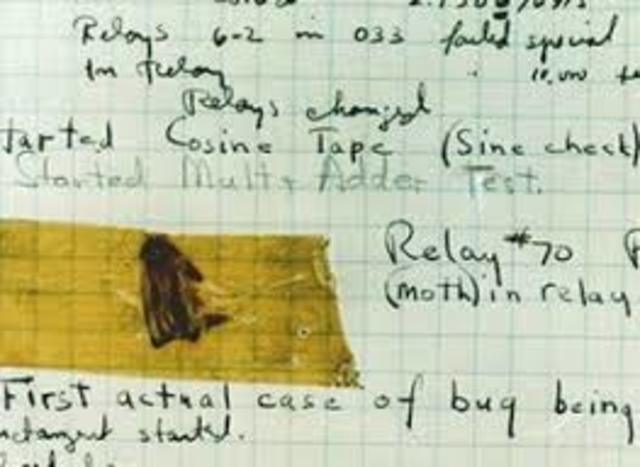 Relays 6-2 in 033 failed special
In Relay
Relays changed
tarted Cosine Tape (Sine check)
Started Mult + Adder Test.
Relay #70
(moth) in relay
First actual case of bug being
started.